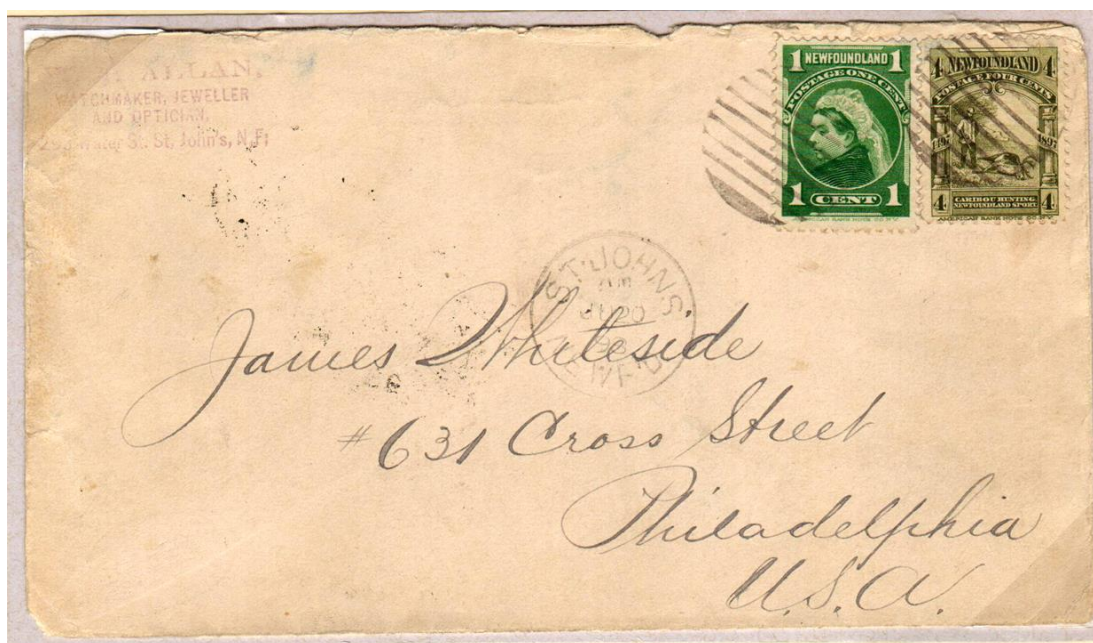 ALLAN,
WATCHMAKER, JEWELLER
AND OPTICIAN,
Water St. St. John's, N.F.
1 NEWFOUNDLAND 1
POSTAGE ONE CENT
1 CENT 1
4 NEWFOUNDLAND 4
POSTAGE FOUR CENTS
1497 1897
4 CARIBOU HUNTING 4
NEWFOUNDLAND SPORT
ST. JOHN'S
AM
20
NEWF'D
James Whiteside
#631 Cross Street
Philadelphia
U.S.A.